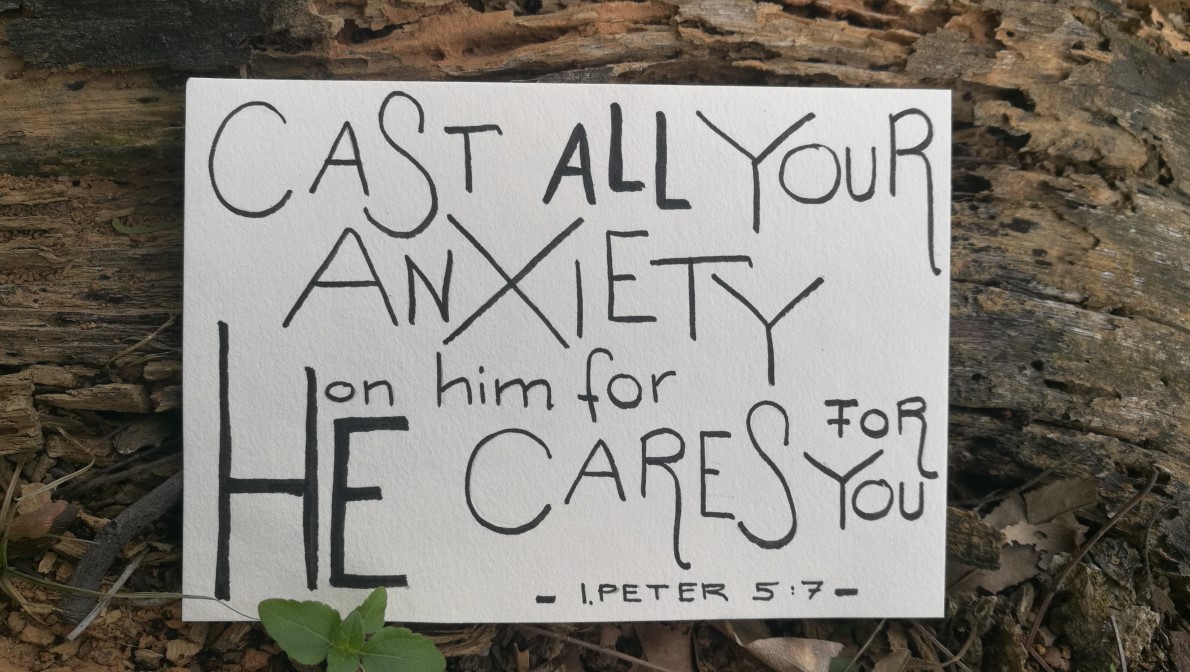 CAST ALL YOUR
ANXIETY
on him for
HE CARES FOR
YOU
- 1.PETER 5:7 -